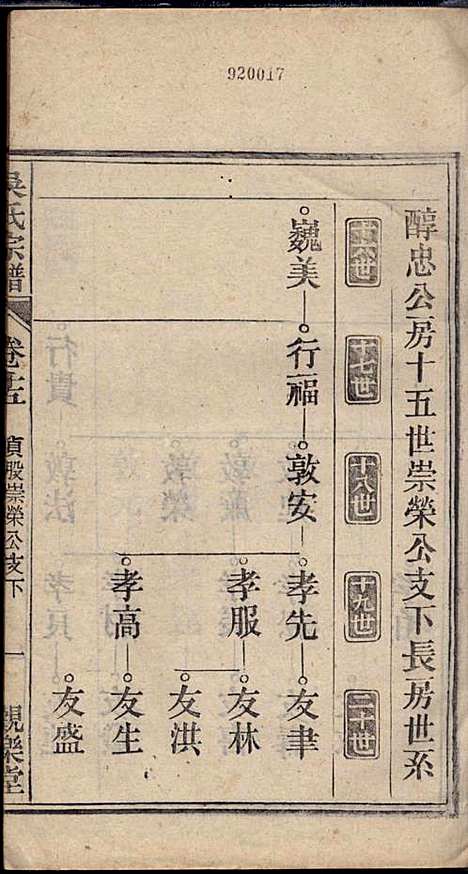 920017
醇忠公房十五世崇榮公支下長房世系
十六世
十七世
十八世
十九世
二十世
巍美
行福
敦安
孝先
友聿
孝服
友林
友洪
孝高
友生
友盛
吳氏宗譜
卷十五
貞股崇榮公支下
一